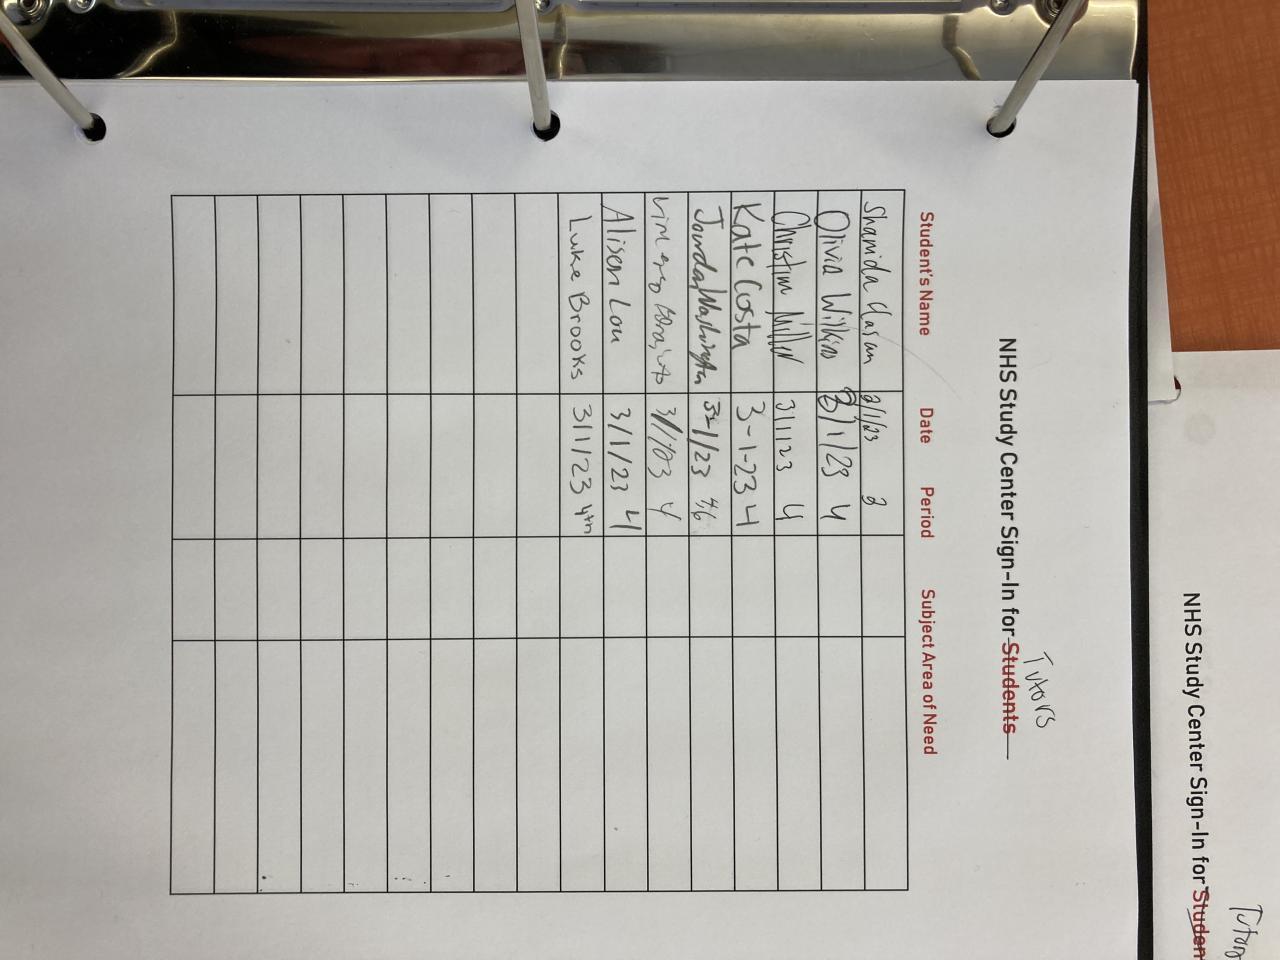 NHS Study Center Sign-In for Students Tutors
Student's Name Date Period Subject Area of Need
Shamida 2/1/23 2
Olivia Wilkins 3/1/23 4
Christian Miller 3/1/23 4
Kate Costa 3-1-23 4
Jourdan Washington 3-1/23 4,6
3/1/23 4
Alison Lou 3/1/23 4
Luke Brooks 3/1/23 4th
NHS Study Center Sign-In for Studen